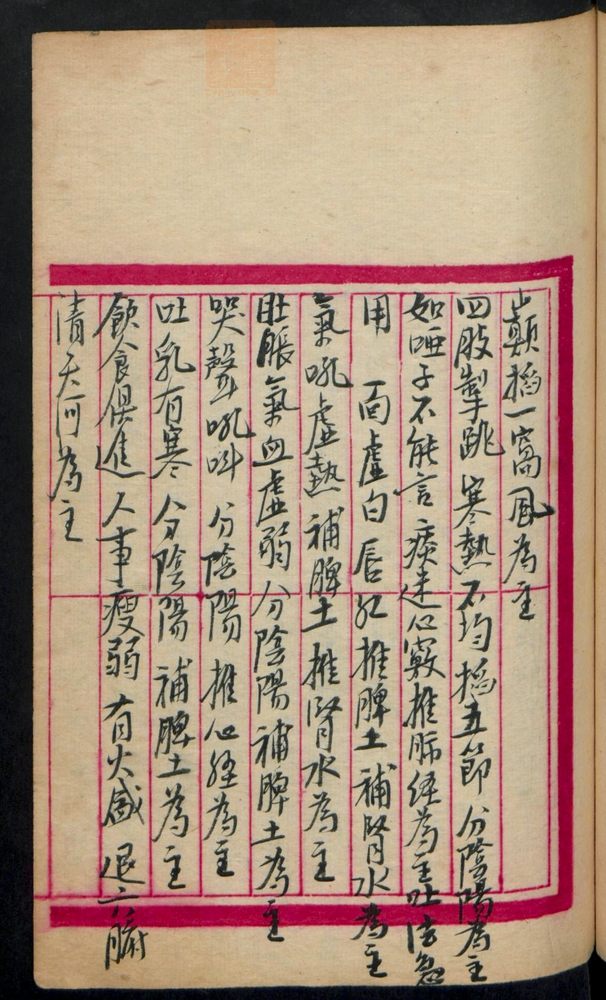 巔掐一窩風為主
四肢掣跳 寒熱不均 掐五節 分陰陽為主
如啞子不能言 痰迷心竅 推肺經為主 吐法急
用 面虛白 唇紅 推脾土 補腎水為主
氣吼虛熱 補脾土 推腎水為主
肚脹氣血虛弱 分陰陽 補脾土為主
哭聲吼叫 分陰陽 推心經為主
吐乳有寒 分陰陽 補脾土為主
飲食俱進 人事瘦弱 有火盛 退六腑
清天河為主